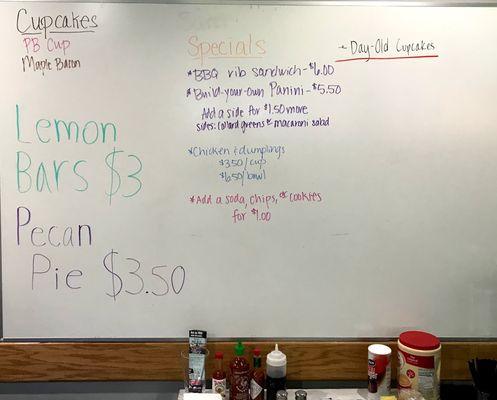 Cupcakes
PB Cup
Maple Bacon
Lemon
Bars $3
Pecan
Pie $3.50
Specials
*BBQ rib sandwich-$6.00
*Build-your-own Panini-$5.50
Add a side for $1.50 more
sides: collard greens & macaroni salad
*Chicken & dumplings
$3.50/cup
$6.50/bowl
*Add a soda, chips, or cookies
for $1.00
- Day-Old Cupcakes